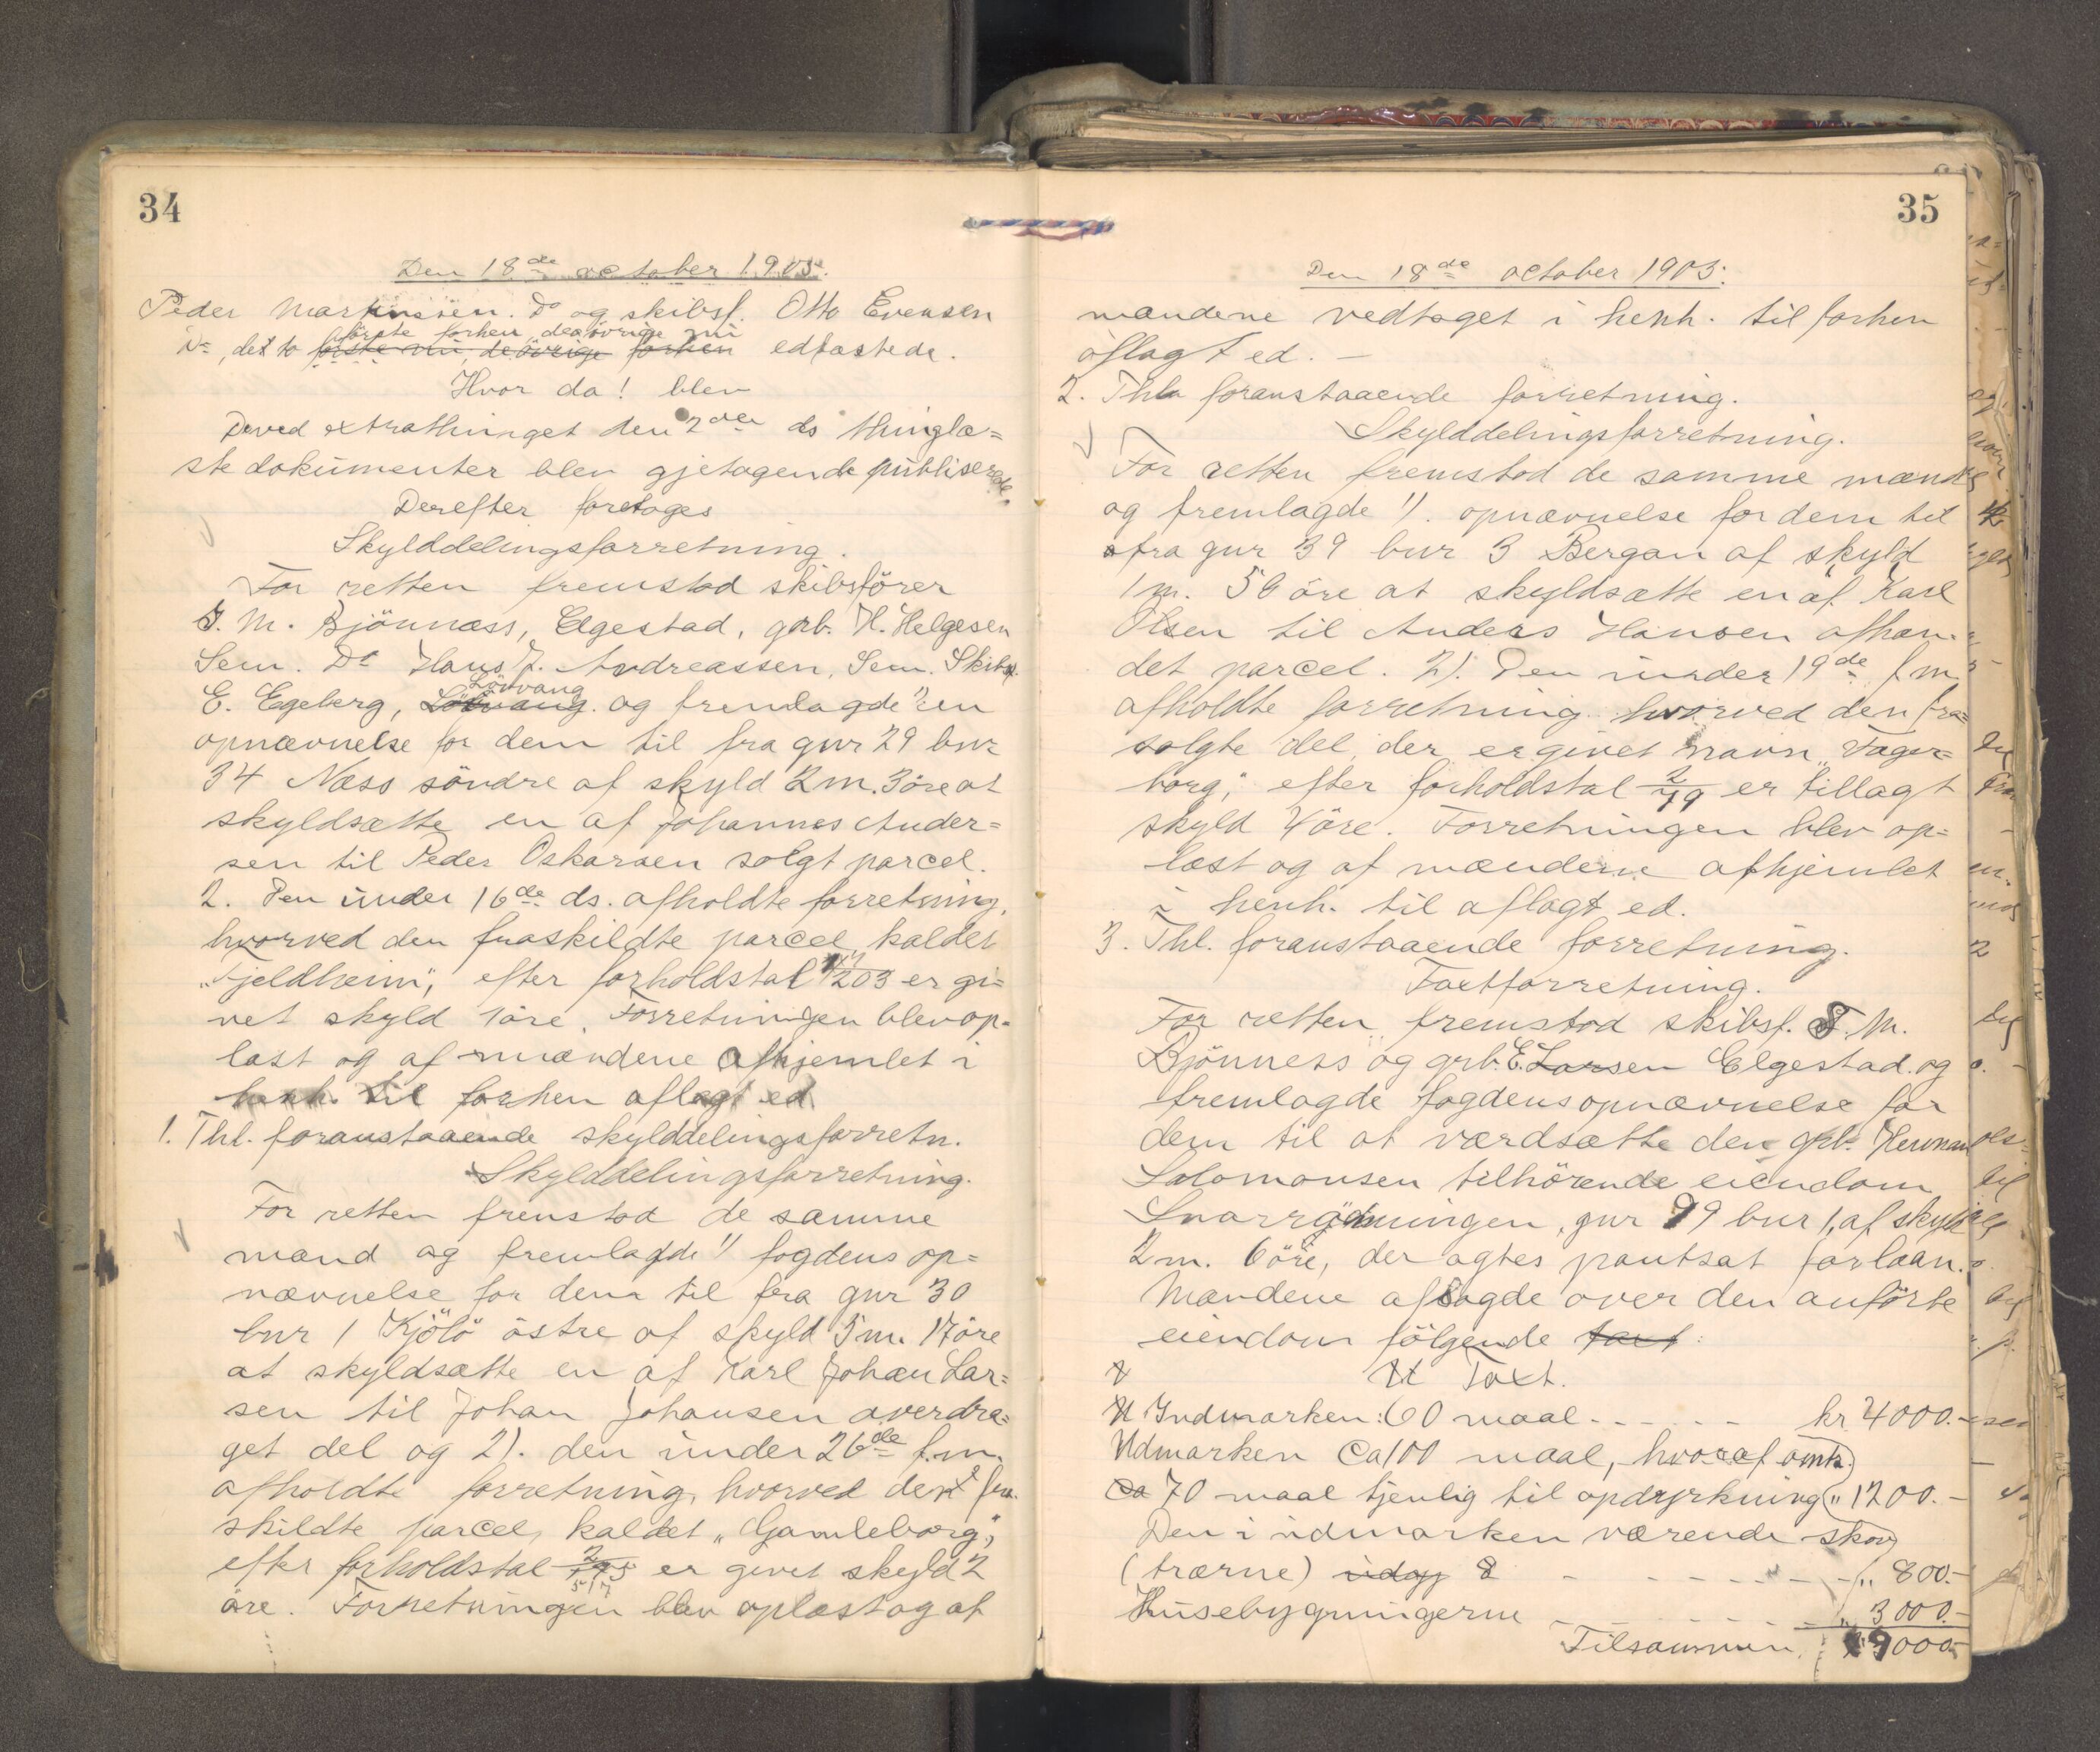 34
Den 18de october 1905.
Peder Martinsen. Do og skibsf. Otto Evensen
første forhen, de øvrige nu
Do, det to første nu, de øvrige forhen edfæstede.
Hvor da! blev
De ved extrathinget den 2den ds thinglæ=
ste dokumenter blev gjetagende publiserede.
Derefter foretoges
Skylddelingsforretning.
For retten fremstod skibsfører
J. M. Bjönness, Elgestad, grb. H. Helgesen
Sem. Do Hans J. Andreassen, Sem. Skibsf.
Lövvang
E. Egeberg, og fremlagde 1) en
opnævnelse for dem til fra gnr 29 bnr
34 Næss söndre af skyld 2 m. 3 öre at
skyldsætte en af Johannes Ander=
sen til Peder Oskarsen solgt parcel.
2. Den under 16de ds. afholdte forretning,
hvorved den fraskildte parcel, kaldet
"Fjeldheim", efter forholdstal /203 er gi=
vet skyld 1 öre. Forretningen blev op=
læst og af mændene afhjemlet i
henh. til forhen aflagt ed.
1. Thl. foranstaaende skylddelingsforretn.
Skylddelingsforretning.
For retten fremstod de samme
mænd og fremlagde 1) fogdens op=
nævnelse for dem til fra gnr 30
bnr 1 Kjölö östre af skyld 5 m. 17 öre
at skyldsætte en af Karl Johan Lar=
sen til Johan Johansen overdra=
get del og 2). den under 26de f.m.
afholdte forretning, hvorved den fra=
skildte parcel, kaldet "Gamleborg",
efter forholdstal 2/517 er givet skyld 2
öre. Forretningen blev oplæst og af
35
Den 18de october 1905.
mændene vedtaget i henh. til forhen
aflagt ed. —
2. Thl. foranstaaende forretning.
Skylddelingsforretning.
For retten fremstod de samme mænd
og fremlagde 1). opnævnelse for dem til
fra gnr 39 bnr 3 Bergan af skyld
1 m. 56 öre at skyldsætte en af Karl
Olsen til Anders Hansen afhæn=
det parcel. 2). Den under 19de f.m.
afholdte forretning hvorved den fra=
solgte del, der er givet navn "Fager=
borg", efter forholdstal 2/79 er tillagt
skyld 4 öre. Forretningen blev op=
læst og af mændene afhjemlet
i henh. til aflagt ed.
3. Thl. foranstaaende forretning.
Taxtforretning.
For retten fremstod skibsf. J. M.
Bjönness og grb. E. Larsen Elgestad og
fremlagde fogdens opnævnelse for
dem til at værdsætte den grb. Herman
Salomonsen tilhörende eiendom
Snarrödningen, gnr 99 bnr 1, af skyld
2 m. 6 öre, der agtes pantsat for laan.
Mændene afsagde over den anförte
eiendom fölgende taxt:
Taxt.
Indmarken: 60 maal - - - - - kr 4000.-
Udmarken Ca 100 maal, hvoraf omtr.
Ca 70 maal tjenlig til opdyrkning " 1200.-
Den i udmarken værende skov
(trærne) udgj 8 - - - - - - " 800.-
Husebygningerne - - - - - " 3000.-
Tilsammen 9000.-